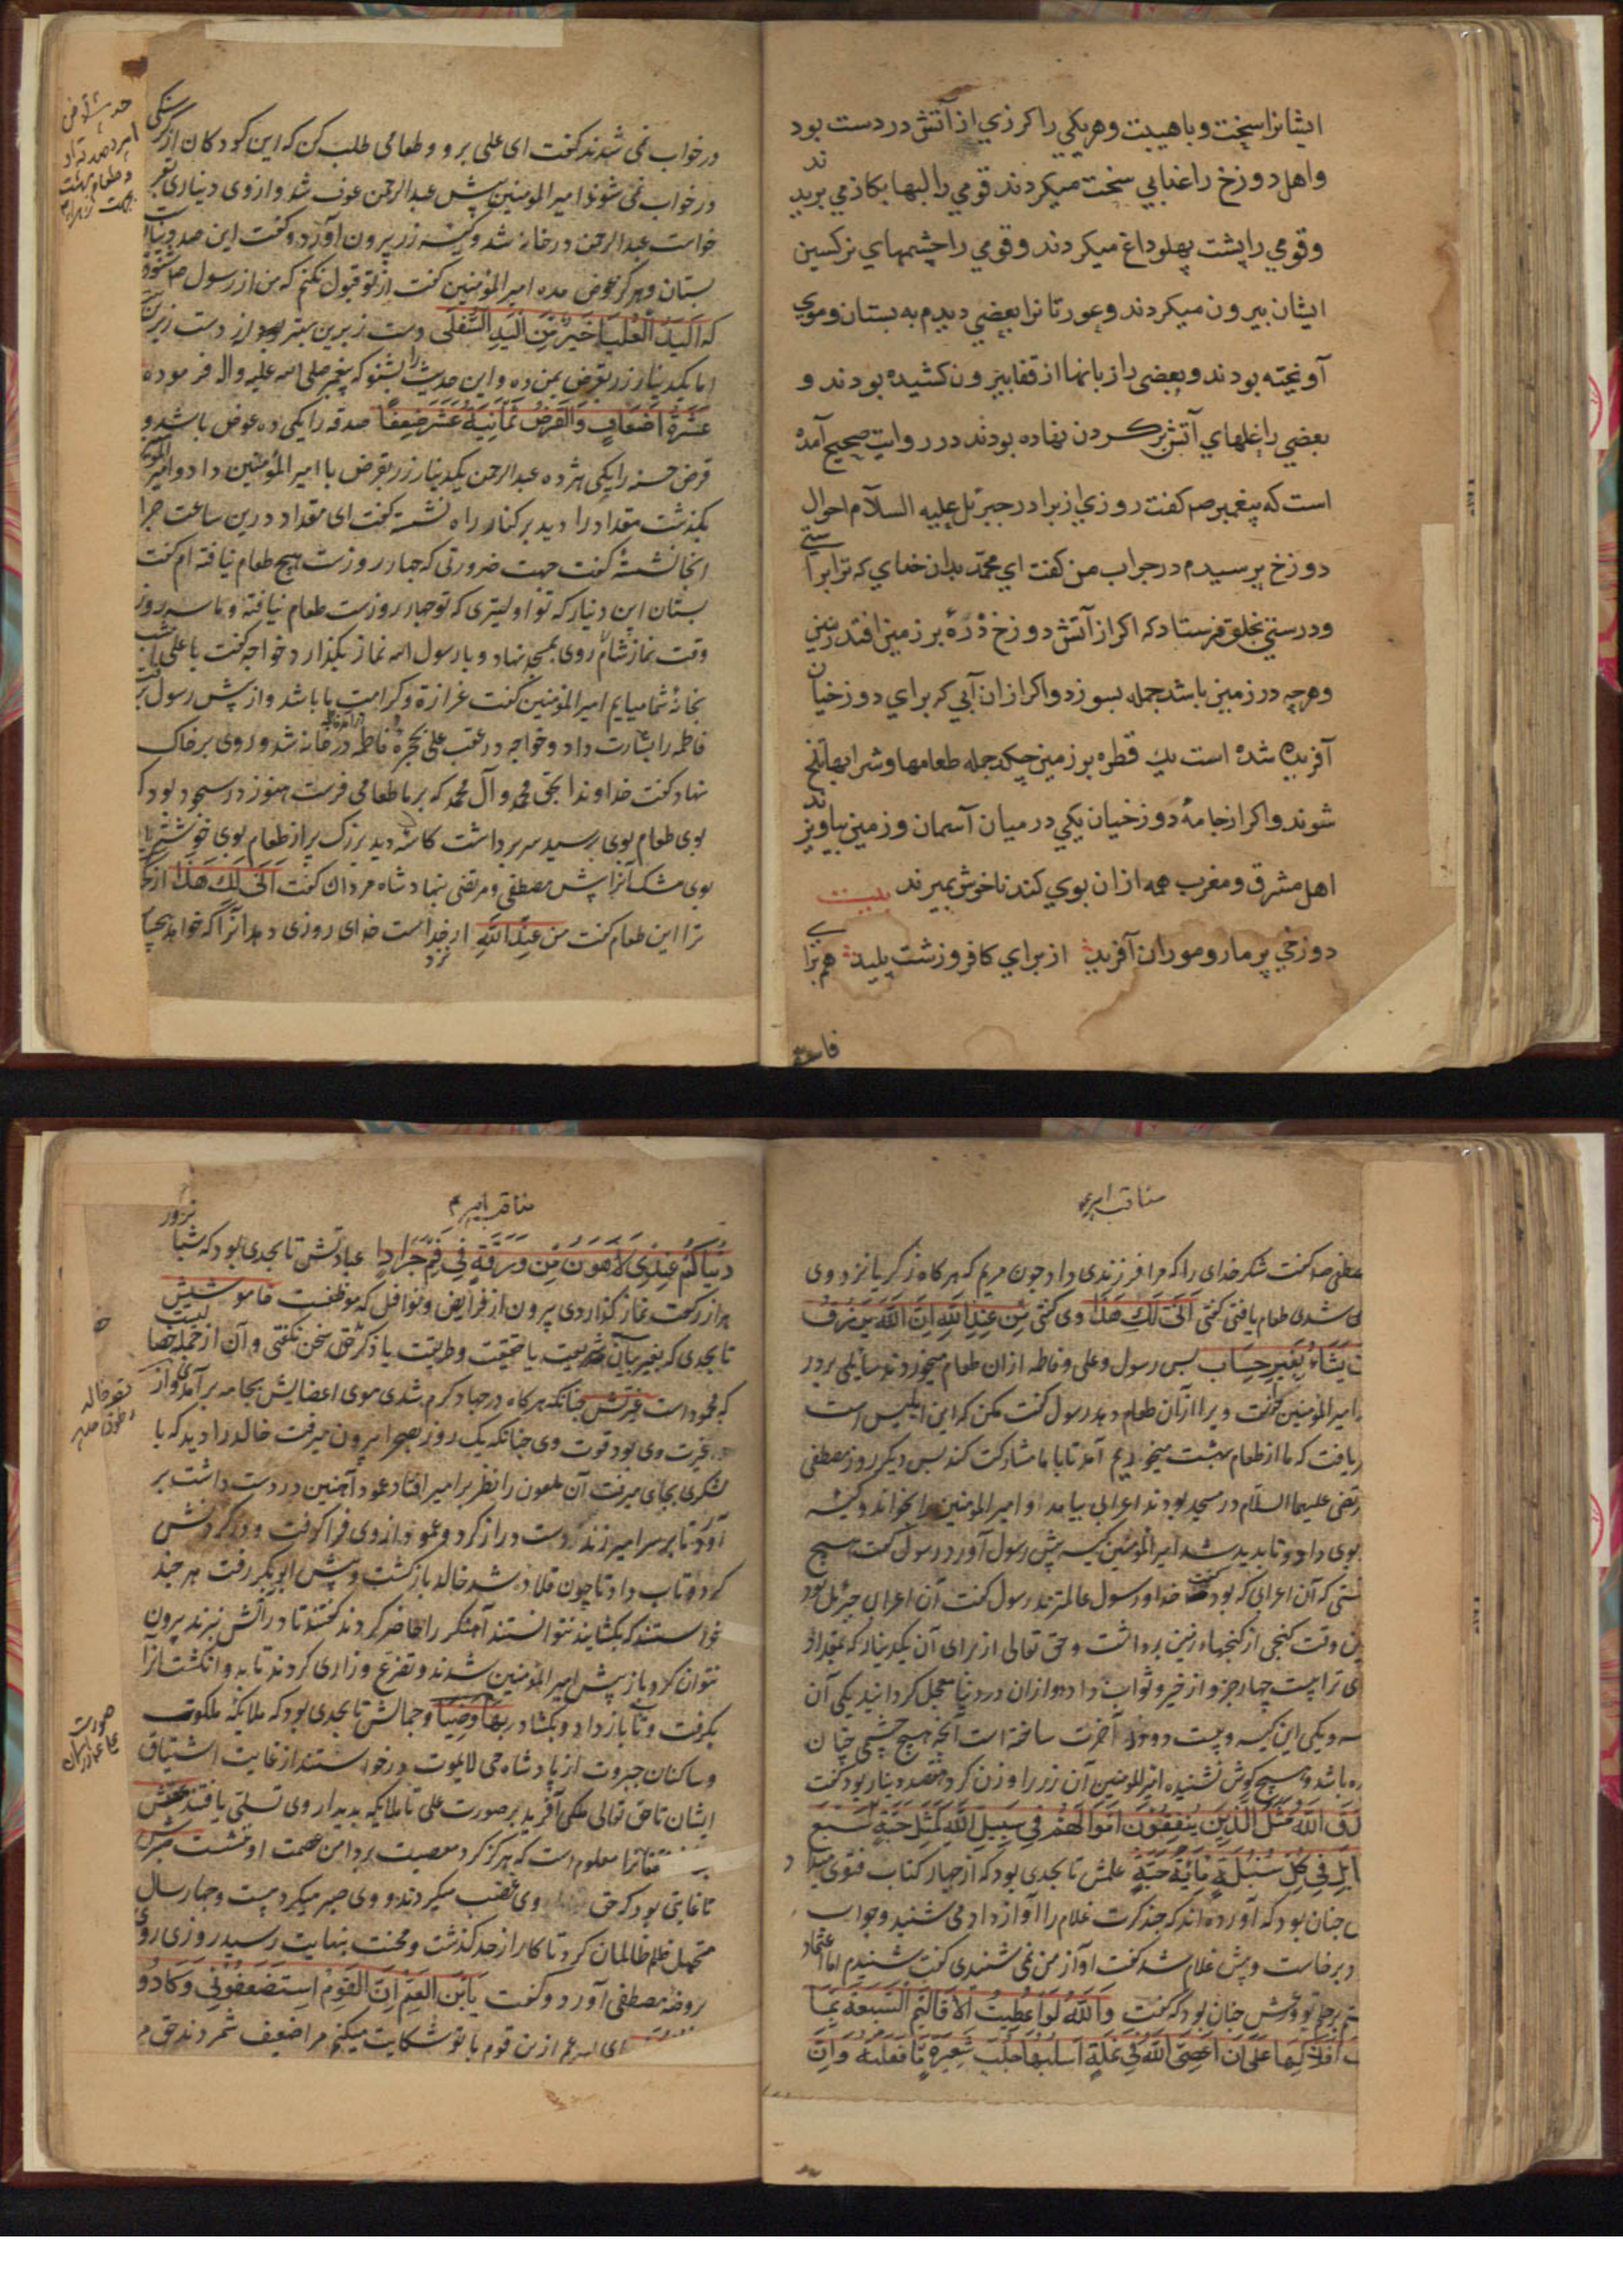 ایشانرا سخت و با هیبت و هر یکی را کرزي از آتش در دست بود
و اهل دوزخ را عذابي سخت میکردند قومي را لبها بکاز مي بریدند
و قومي را پشت پهلو داغ میکردند و قومي را چشمهاي نرکسین
ایشان بیرون میکردند و عورتانرا بعضي دیدم به بستان و موي
آویخته بودند و بعضی را زبانها از قفا بیرون کشیده بودند و
بعضي را غلهاي آتش بر کردن نهاده بودند در روایت صحیح آمده
است که پیغمبر صم کفت روزي از برادر جبرئیل علیه السلام احوال
دوزخ پرسیدم در جواب من کفت اي محمد بدان خداي که ترا براستي
و درستي بخلق فرستاد که اکر از آتش دوزخ ذره بر زمین افتد زمین
و هرچه در زمین باشد جمله بسوزد و اکر ازان آبي که براي دوزخیان
آفریده شده است یك قطره بر زمین چکد جمله طعامها و شرابها تلخ
شوند و اکر از جامۀ دوزخیان یکي در میان آسمان و زمین بیاویزند
اهل مشرق و مغرب همه ازان بوي کند ناخوش بمیرند بیت
دوزخي پر مار و موران آفرید از براي کافر و زشت پلید
در خواب نمی شدند کفت ای علی برو و طعامی طلب کن که این کودکان از کرسنکی
در خواب نمی شوند امیر المومنین پیش عبد الرحمن عوف شد و از وی دیناری بقرض
خواست عبد الرحمن در خانه شد و کیسه زر بیرون آورد و کفت این صد دینار
بستان و هرکز عوض مده امیر المؤمنین کفت از تو قبول نکنم که من از رسول ص شنودم
که الید العلیا خیر من الید السفلی دست زبرین بهتر بود از دست زیرین
اما یکدینار زر بقرض بمن ده و این حدیث را بشنو که پیغمبر صلی الله علیه و اله فرموده
عشرة اضعاف و القرض ثمانیة عشر ضعفا صدقه را یکی ده عوض باشد و
قرض حسنه را یکی هژده عبد الرحمن یکدینار زر بقرض با امیر المؤمنین داد و امیر المؤمنین
بکذشت مقداد را دید بر کنار راه نشسته کفت ای مقداد درین ساعت چرا
اینجا نشستۀ کفت جهت ضرورتی که چهار روزست هیچ طعام نیافته ام کفت
بستان این دینار که تو اولیتری که تو چهار روزست طعام نیافته و ما سه روز
وقت نماز شام روی بمسجد نهاد و با رسول الله نماز بکذارد خواجه کفت یا علی امشب
بخانۀ شما میایم امیر المؤمنین کفت عزازة و کرامت باباشد و از پیش رسول برفت
فاطمه را بشارت داد و خواجه در عقب علی بحجرۀ فاطمه در آمد فاطمه در خانه شد و روی بر خاک
نهاد کفت خداوندا بحق محمد و آل محمد که بر ما طعامی فرست هنوز در سجود بود که
بوی طعام بوی رسید سر برداشت کاسۀ دید بزرک پر از طعام بوی خوشتر از
بوی مشک آنرا پیش مصطفی و مرتضی بنهاد شاه مردان کفت انی لک هذا از کجا
ترا این طعام کفت من عند الله از نزد خداست خدای روزی دهد آنرا که خواهد بیحساب
مناقب امیر ع
مصطفی ص کفت شکر خدای را که مرا فرزندی داد چون مریم که هرکاه زکریا نزد وی
شدی طعام یافتی کفتی انی لک هذا وی کفتی من عند الله ان الله یرزق
من یشاء بغیر حساب پس رسول و علی و فاطمه ازان طعام میخوردند سایلی بر در
امیر المؤمنین خواست ویرا ازان طعام دهد رسول کفت مکن که این ابلیس است
دریافت که ما از طعام بهشت میخوریم آمد تا با ما مشارکت کند پس دیکر روز مصطفی
و مرتضی علیهما السلام در مسجد بودند اعرابی بیامد و امیر المومنین را بخواند و کیسه
بوی داد و ناپدید شد امیر المؤمنین کیسه پیش رسول آورد رسول کفت هیچ
دانستی که آن اعرابی که بود کفت خدا و رسول عالمترند رسول کفت آن اعرابی جبرئیل بود
این وقت کنجی از کنجهاء زمین برداشت و حق تعالی از برای آن یکدینار که بمقداد
دادی ترا بیست چهار جزو از خیر و ثواب داد دو ازان در دنیا معجل کردانید یکی آن
کاسه و یکی این کیسه و بیست و دو در آخرت ساخته است آنچه هیچ چشمی چنان
ندیده باشد و هیچ کوش نشنیده امیر المومنین آن زر را وزن کرد هفتصد دینار بود کفت
صدق الله مثل الذین ینفقون اموالهم فی سبیل الله کمثل حبة انبتت سبع
سنابل فی کل سنبلة مائة حبة علمش تا بحدی بود که از چهار کتاب فتوی میداد
چنان بود که آورده اند که چند کرت غلام را آواز داد می شنید و جواب
و برخاست و پیش غلام شد کفت آواز من نمی شنیدی کفت شنیدم اما اعتماد
بر حلم تو چنان بود که کفت و الله لو اعطیت الاقالیم السبعة بما
تحت افلاکها علی ان اعصی الله فی نملة اسلبها جلب شعیرة ما فعلته و ان
مناقب امیر ع
دنیاکم عندی لاهون من ورقة فی فم جراد عبادتش تا بحدی بود که شبا
هزار رکعت نماز کذاردی بیرون از فرایض و نوافل که موظفست خاموشیش
تا بحدی که بغیر بیان شریعت یا حقیقت و طریقت یا ذکر حق سخن نکفتی و آن از جمله
که محمود است غیرتش چنانکه هرکاه در جهاد کرم شدی موی اعضایش بجامه برآمدی و از
غیرت وی بود قوت وی چنانکه یک روز بصحرا بیرون میرفت خالد را دید که با
لشکری بجای میرفت آن ملعون را نظر بر امیر افتاد عمود آهنین در دست داشت بر
آورد تا بر سر امیر زند دست دراز کرد و عمود از وی فرا کرفت و در کردنش
کرد و تاب داد تا چون قلاده شد خالد بازکشت و پیش ابوبکر رفت هر چند
خواستند که بکشایند نتوانستند آهنکر را حاضر کردند کفتند تا در آتش نبرند بیرون
نتوان کرد باز پیش امیر المؤمنین شدند و تضرع و زاری کردند تا بدو انکشت آنرا
بکرفت و تاب باز داد و بکشاد بهاء و ضیاء و جمالش تا بحدی بود که ملایکه ملکوت
و ساکنان جبروت از پادشاه حی لایموت درخواستند از غایت اشتیاق
ایشان تا حق تعالی ملکی آفرید بر صورت علی تا ملایکه بدیدار وی تسلی یافتند عصمتش
معلوم است که هرکز کرد معصیت بر دامن عصمت او ننشست صبرش
تا غایتی بود که حق وی غصب میکردند و وی صبر میکرد بیست و چهار سال
متحمل ظلم ظالمان کرد تا کار از حد کذشت و محنت بنهایت رسید روزی روی
بروضۀ مصطفی آورد و کفت یا ابن العم ان القوم استضعفونی و کادو
ای پسر عم ازین قوم با تو شکایت میکنم مرا ضعیف شمردند حق م
صورت